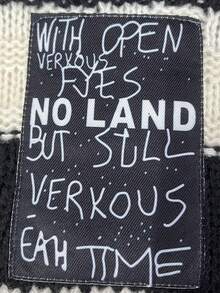 WITH OPEN
VERVOUS
EYES
NO LAND
BUT STILL
VERKOUS
EAH TIME